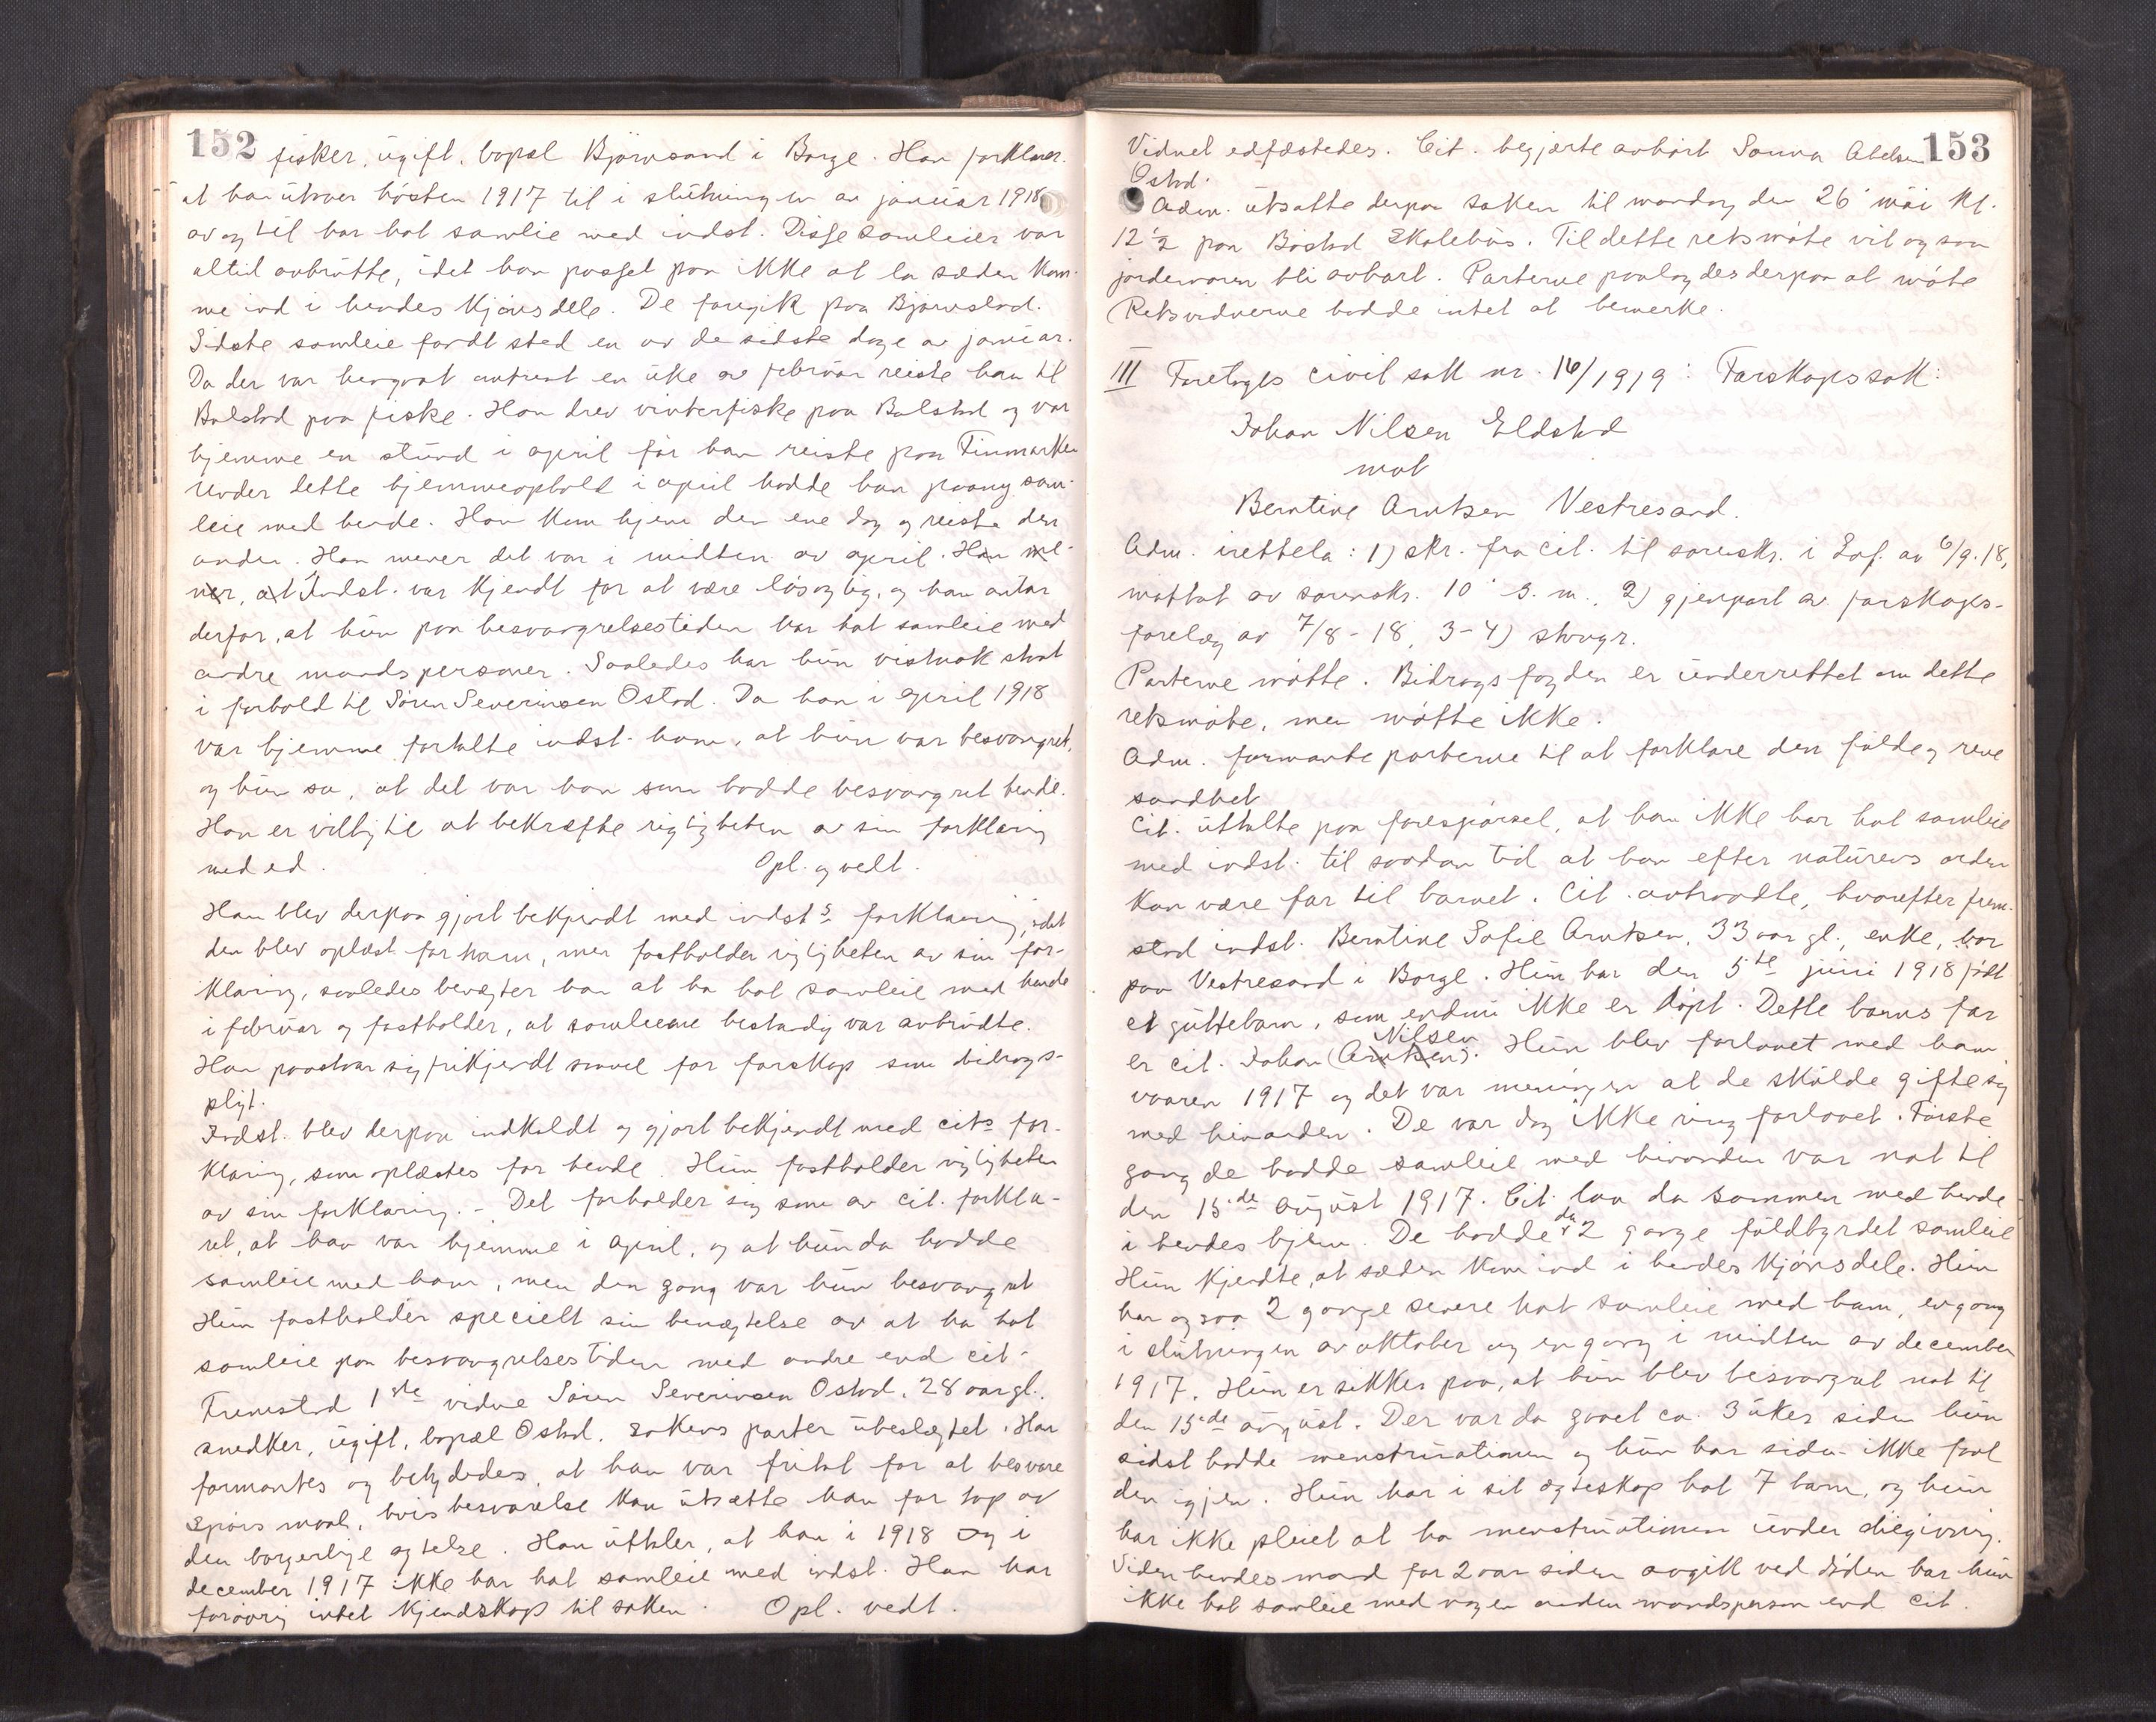 152
fisker, ugift, bopæl Bjørnsand i Borge. Han forklarer
at han utover høsten 1917 til i slutningen av januar 1918
av og til har hat samleie med indst. Disse samleier var
altid avbrutte, idet han passet paa ikke at la sæden kom-
me ind i hendes kjønsdele. De foregik paa Bjørnsand.
Sidste samleie fandt sted en av de sidste dage av januar.
Da der var hengaat omtrent en uke av februar reiste han til
Balstad paa fiske. Han drev vinterfiske paa Balstad og var
hjemme en stund i april før han reiste paa Finmarken
Under dette hjemmeophold i april hadde han paany sam-
leie med hende. Han kom hjem den ene dag og reiste den
anden. Han mener det var i midten av april. Han me-
ner, at Indst. var kjendt for at være løsagtig, og han antar
derfor, at hun paa besvangrelsestiden har hat samleie med
andre mandspersoner. Saaledes har hun vistnok staat
i forhold til Søren Severinsen Ostad. Da han i april 1918
var hjemme fortalte indst. ham, at hun var besvangret,
og hun sa, at det var han som hadde besvangret hende.
Han er villig til at bekræfte rigtigheten av sin forklaring
med ed. Opl. og vedt.
Han blev derpaa gjort bekjendt med indst.s forklaring, idet
den blev oplæst for ham, men fastholder rigtigheten av sin for-
klaring, saaledes benegter han at ha hat samleie med hende
i februar og fastholder, at samleiene bestandig var avbrudte.
Han paastaar sig frikjendt saavel for farskap som bidrags-
pligt.
Indst. blev derpaa indkaldt og gjort bekjendt med cits for-
klaring, som oplæstes for hende. Hun fastholder rigtigheten
av sin forklaring. - Det forholder sig som av cit. forkla-
ret, at han var hjemme i april, og at hun da hadde
samleie med ham, men den gang var hun besvangret
Hun fastholder specielt sin benegtelse av at ha hat
samleie paa besvangrelsestiden med andre end cit.
Fremstod 1ste vidne Søren Severinsen Ostad, 28 aar gl.,
snedker, ugift, bopæl Ostad. Sakens parter ubeslegtet. Han
formantes og betydedes, at han var fritat for at besvare
spørsmaal, hvis besvarelse kan utsætte ham for tap av
den borgerlige agtelse. Han uttaler, at han i 1918 og i
december 1917 ikke har hat samleie med indst. Han har
forøvrig intet kjendskap til saken. Opl. vedt.
153
Vidnet edfæstedes. Cit. begjærte avhørt Sanna Abelsen
Ostad.
Adm. utsatte derpaa saken til mandag den 26' mai kl.
12 1/2 paa Bøstad Skolehus. Til dette retsmøte vil og saa
jordemoren bli avhørt. Parterne paalagdes derpaa at møte
Retsvidnerne hadde intet at bemerke.
III Foretoges civil sak nr. 16/1919: Farskapssak:
Johan Nilsen Eldstad
mot
Berntine Arntsen Vestresand.
Adm. irettela: 1) skr. fra cit. til sorenskr. i Lof. av 6/9.18,
mottat av sorenskr. 10' s. m., 2) gjenpart av farskaps-
forelæg av 7/8-18, 3-4) stvngr.
Parterne møtte. Bidragsfogden er underrettet om dette
retsmøte, men møtte ikke.
Adm. formante parterne til at forklare den fulde og rene
sandhet
Cit. uttalte paa forespørsel, at han ikke har hat samleie
med indst. til saadan tid at han efter naturens orden
kan være far til barnet. Cit. avtraadte, hvorefter frem-
stod indst. Berntine Sofie Arntsen, 33 aar gl., enke, bor
paa Vestresand i Borge. Hun har den 5te juni 1918 født
et guttebarn, som endnu ikke er døpt. Dette barns far
er cit. Johan (Arntsen) Nilsen. Hun blev forlovet med ham
vaaren 1917 og det var meningen at de skulde gifte sig
med hinanden. De var dog ikke ring forlovet. Første
gang de hadde samleie med hinanden var nat til
den 15de august 1917. Cit. laa da sammen med hende
i hendes hjem. De hadde da 2 gange fuldbyrdet samleie
Hun kjendte, at sæden kom ind i hendes kjønsdele. Hun
har og saa 2 gange senere hat samleie med ham, en gang
i slutningen av oktober og en gang i midten av december
1917. Hun er sikker paa, at hun blev besvangret nat til
den 15de august. Der var da gaaet ca. 3 uker siden hun
sidst hadde menstruationen og hun har siden ikke faat
den igjen. Hun har i sit egteskap hat 7 barn, og hun
har ikke pleiet at ha menstruationen under diegivning.
Siden hendes mand for 2 aar siden avgik ved døden har hun
ikke hat samleie med nogen anden mandsperson end cit.